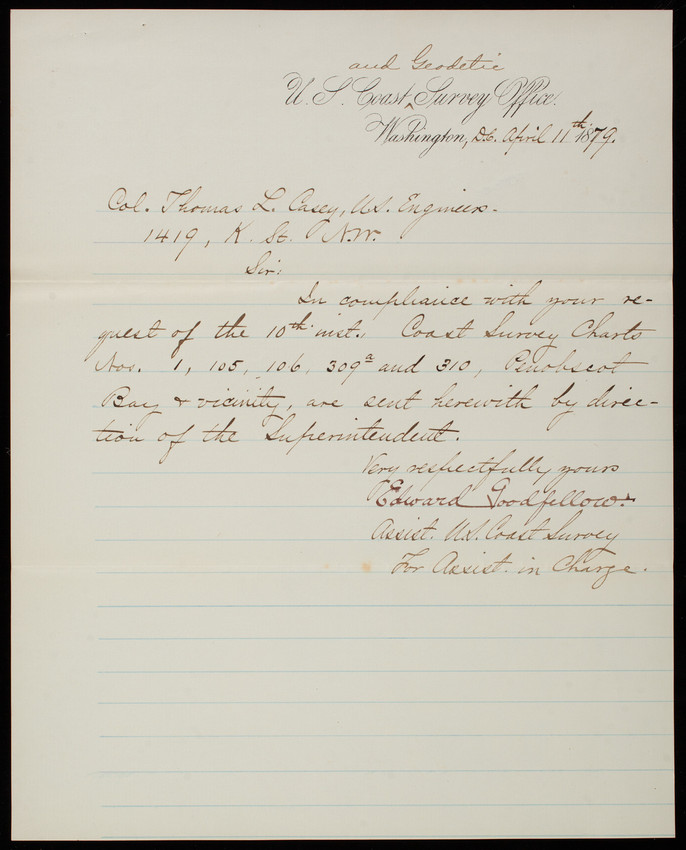 and Geodetic
U. S. Coast ^ Survey Office.
Washington, D.C. April 11th 1879.
Col. Thomas L. Casey, U.S. Engineers.
1419, K. St. N.W.
Sir:
In compliance with your re-
quest of the 10th inst., Coast Survey Charts
Nos. 1, 105, 106, 309a and 310, Penobscot
Bay & vicinity, are sent herewith by direc-
tion of the Superintendent.
Very respectfully yours
Edward Goodfellow.
Assist. U.S. Coast Survey
For Assist. in Charge.